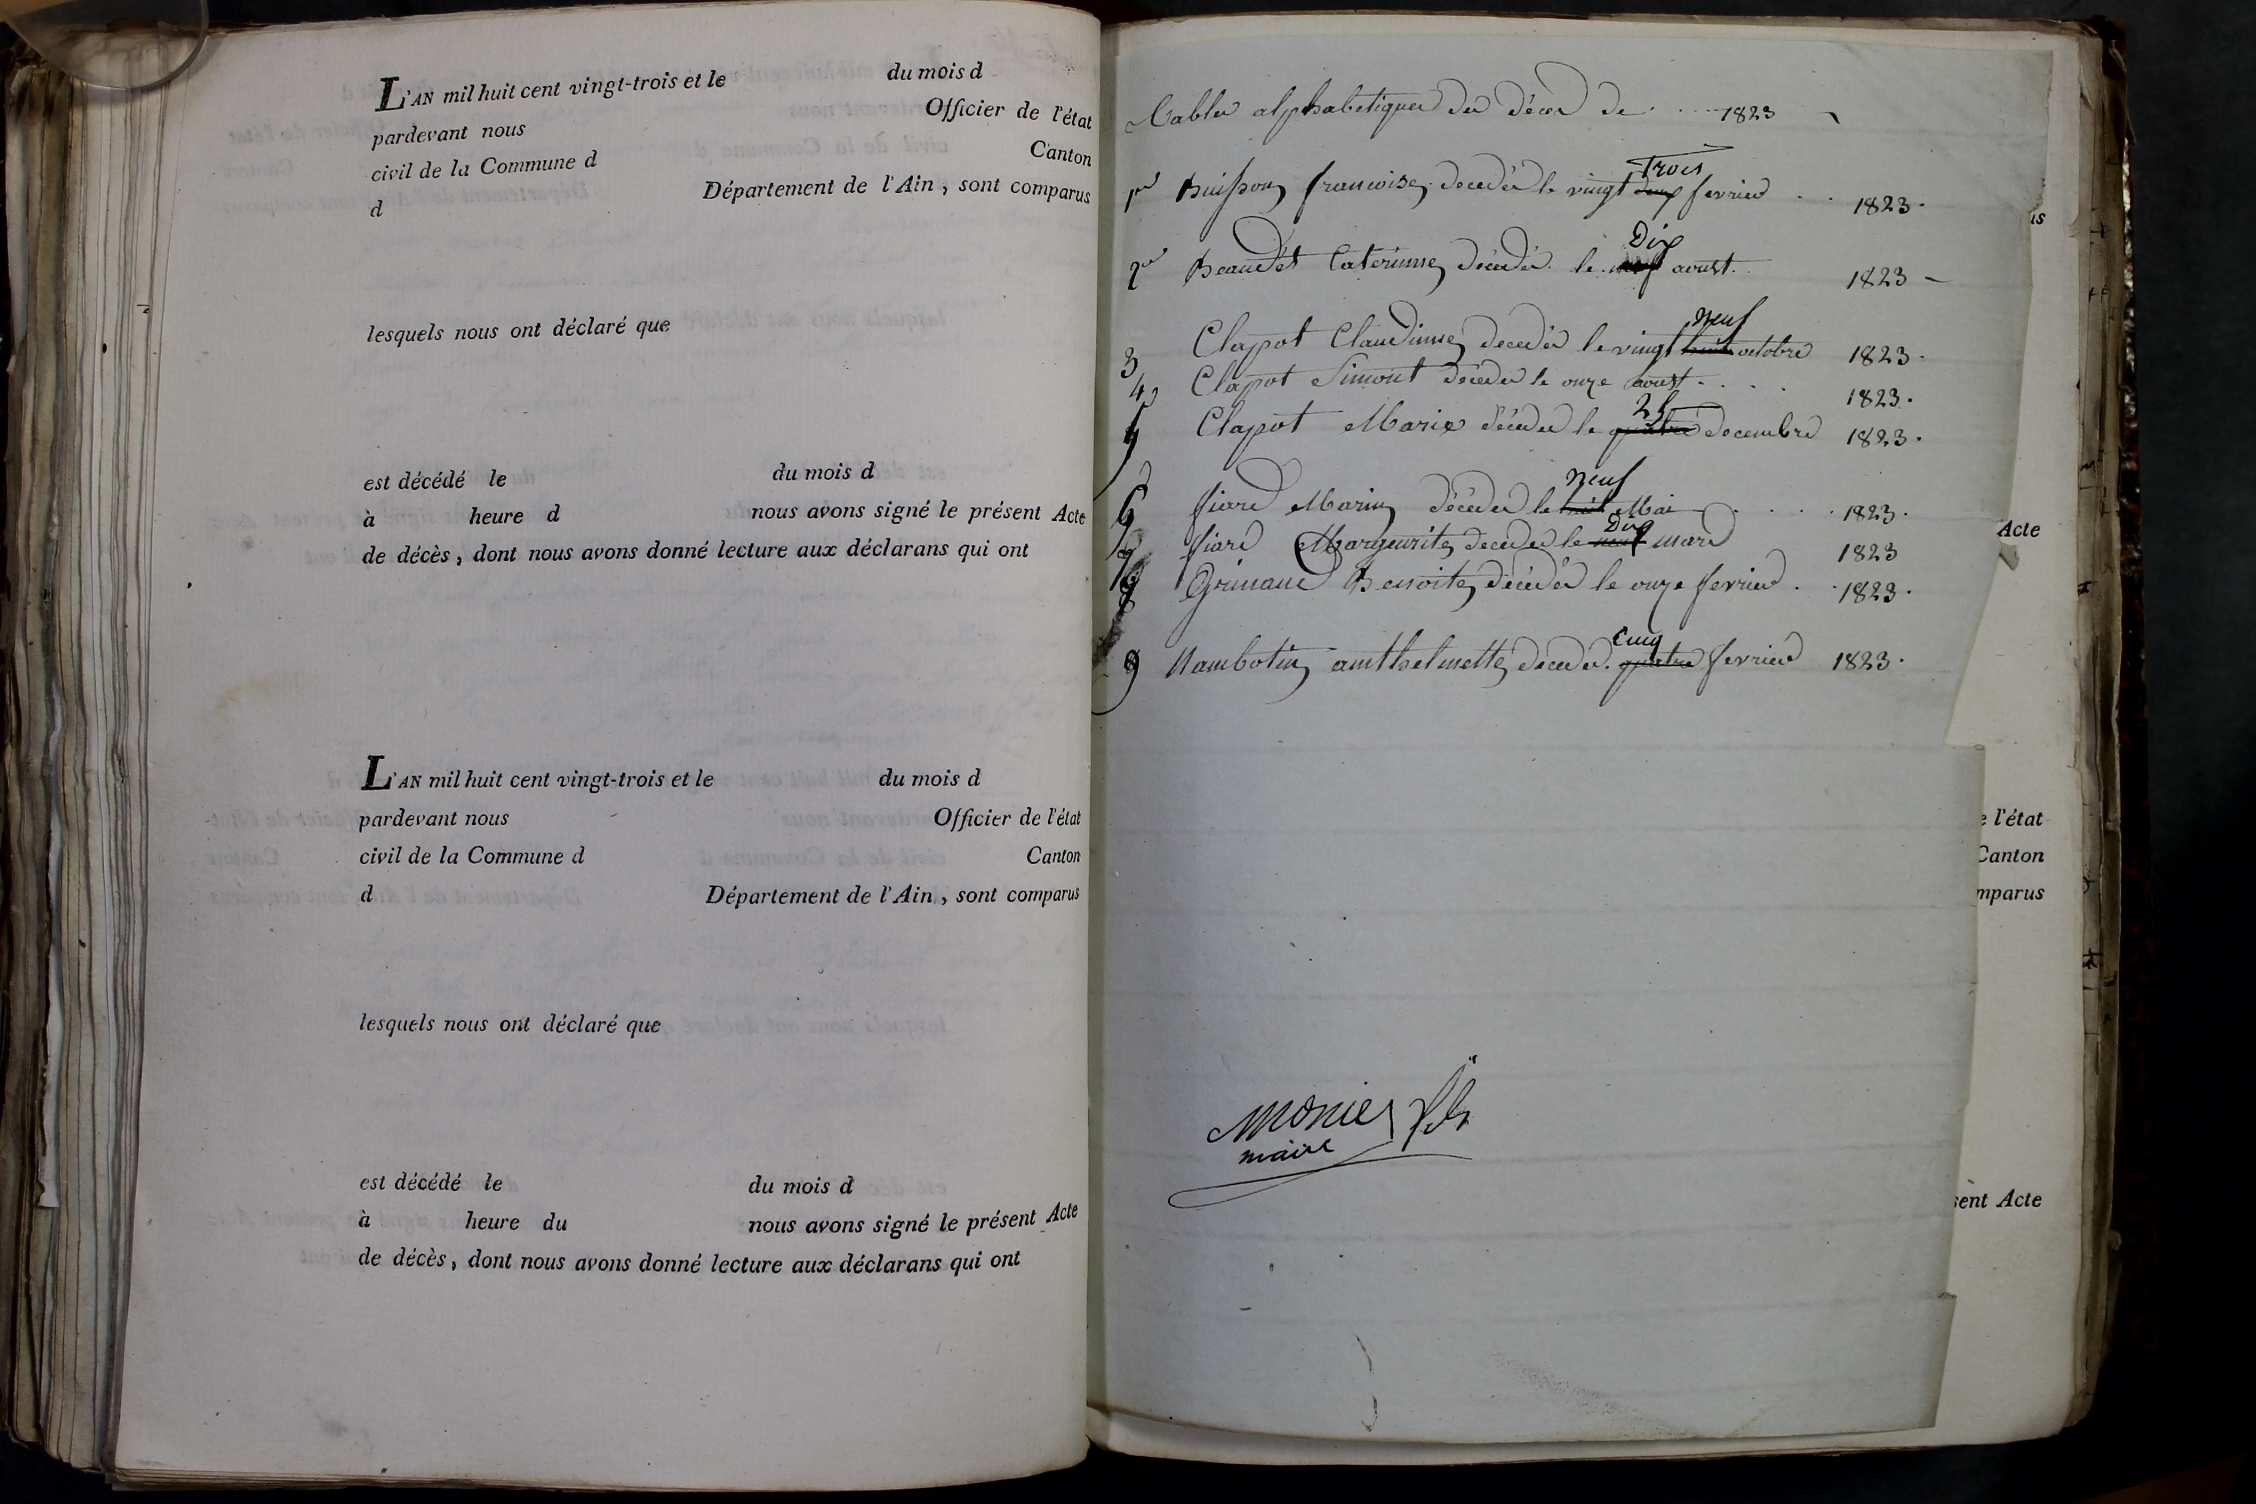 L'AN mil huit cent vingt-trois et le du mois d
pardevant nous Officier de l'état
civil de la Commune d Canton
d Département de l'Ain, sont comparus
lesquels nous ont déclaré que
est décédé le du mois d
à heure d nous avons signé le présent Acte
de décès, dont nous avons donné lecture aux déclarans qui ont
L'AN mil huit cent vingt-trois et le du mois d
pardevant nous Officier de l'état
civil de la Commune d Canton
d Département de l'Ain, sont comparus
lesquels nous ont déclaré que
est décédé le du mois d
à heure du nous avons signé le présent Acte
de décès, dont nous avons donné lecture aux déclarans qui ont
Tables alphabetiques des décès de 1823
Trois
1er Buisson francoise decedée le vingt deux fevrier 1823.
Dix
2e Beaudet Caterinne décédée le neuf aoust 1823
neuf
3 Clapot Claudinne decedée le vingt huit octobre 1823.
4 Clapot Simont décédé le onze aoust 1823.
25
5 Clapot Marie décédée le quatre decembre 1823.
neuf
6 fiard Marin décédé le huit Mai 1823.
Dix
7 fiard Margueritte decedée le neuf mars 1823
8 Grimaud Benoite décédée le onze fevrier 1823.
Cinq
9 Nambotin amthelmette decedée quatre fevrier 1823.
Monier fils
maire
us
Acte
e l'état
Canton
mparus
sent Acte